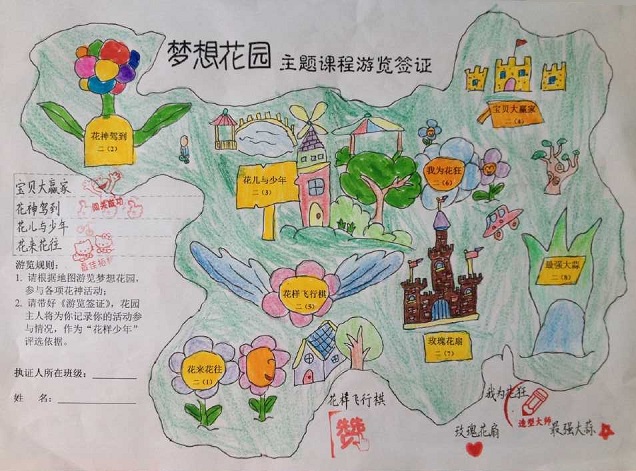 梦想花园 主题课程游览签证
花神驾到
二（2）
宝贝大赢家
二（4）
花儿与少年
二（3）
我为花狂
二（6）
宝贝大赢家
花神驾到
闯关成功
花儿与少年
花来花往
最强大蒜
二（8）
花样飞行棋
二（5）
玫瑰花扇
二（7）
花来花往
二（1）
游览规则：
1. 请根据地图游览梦想花园，
参与各项花神活动；
2. 请带好《游览签证》，花园
主人将为你记录你的活动参
与情况，作为“花样少年”
评选依据。
执证人所在班级：
姓 名：
花样飞行棋
赞
我为花狂
造型大师
玫瑰花扇
最强大蒜